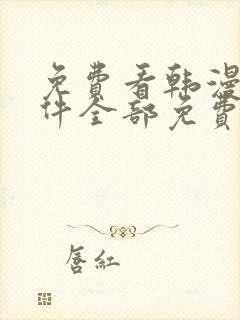 免费看韩漫
件全部免费
唇红